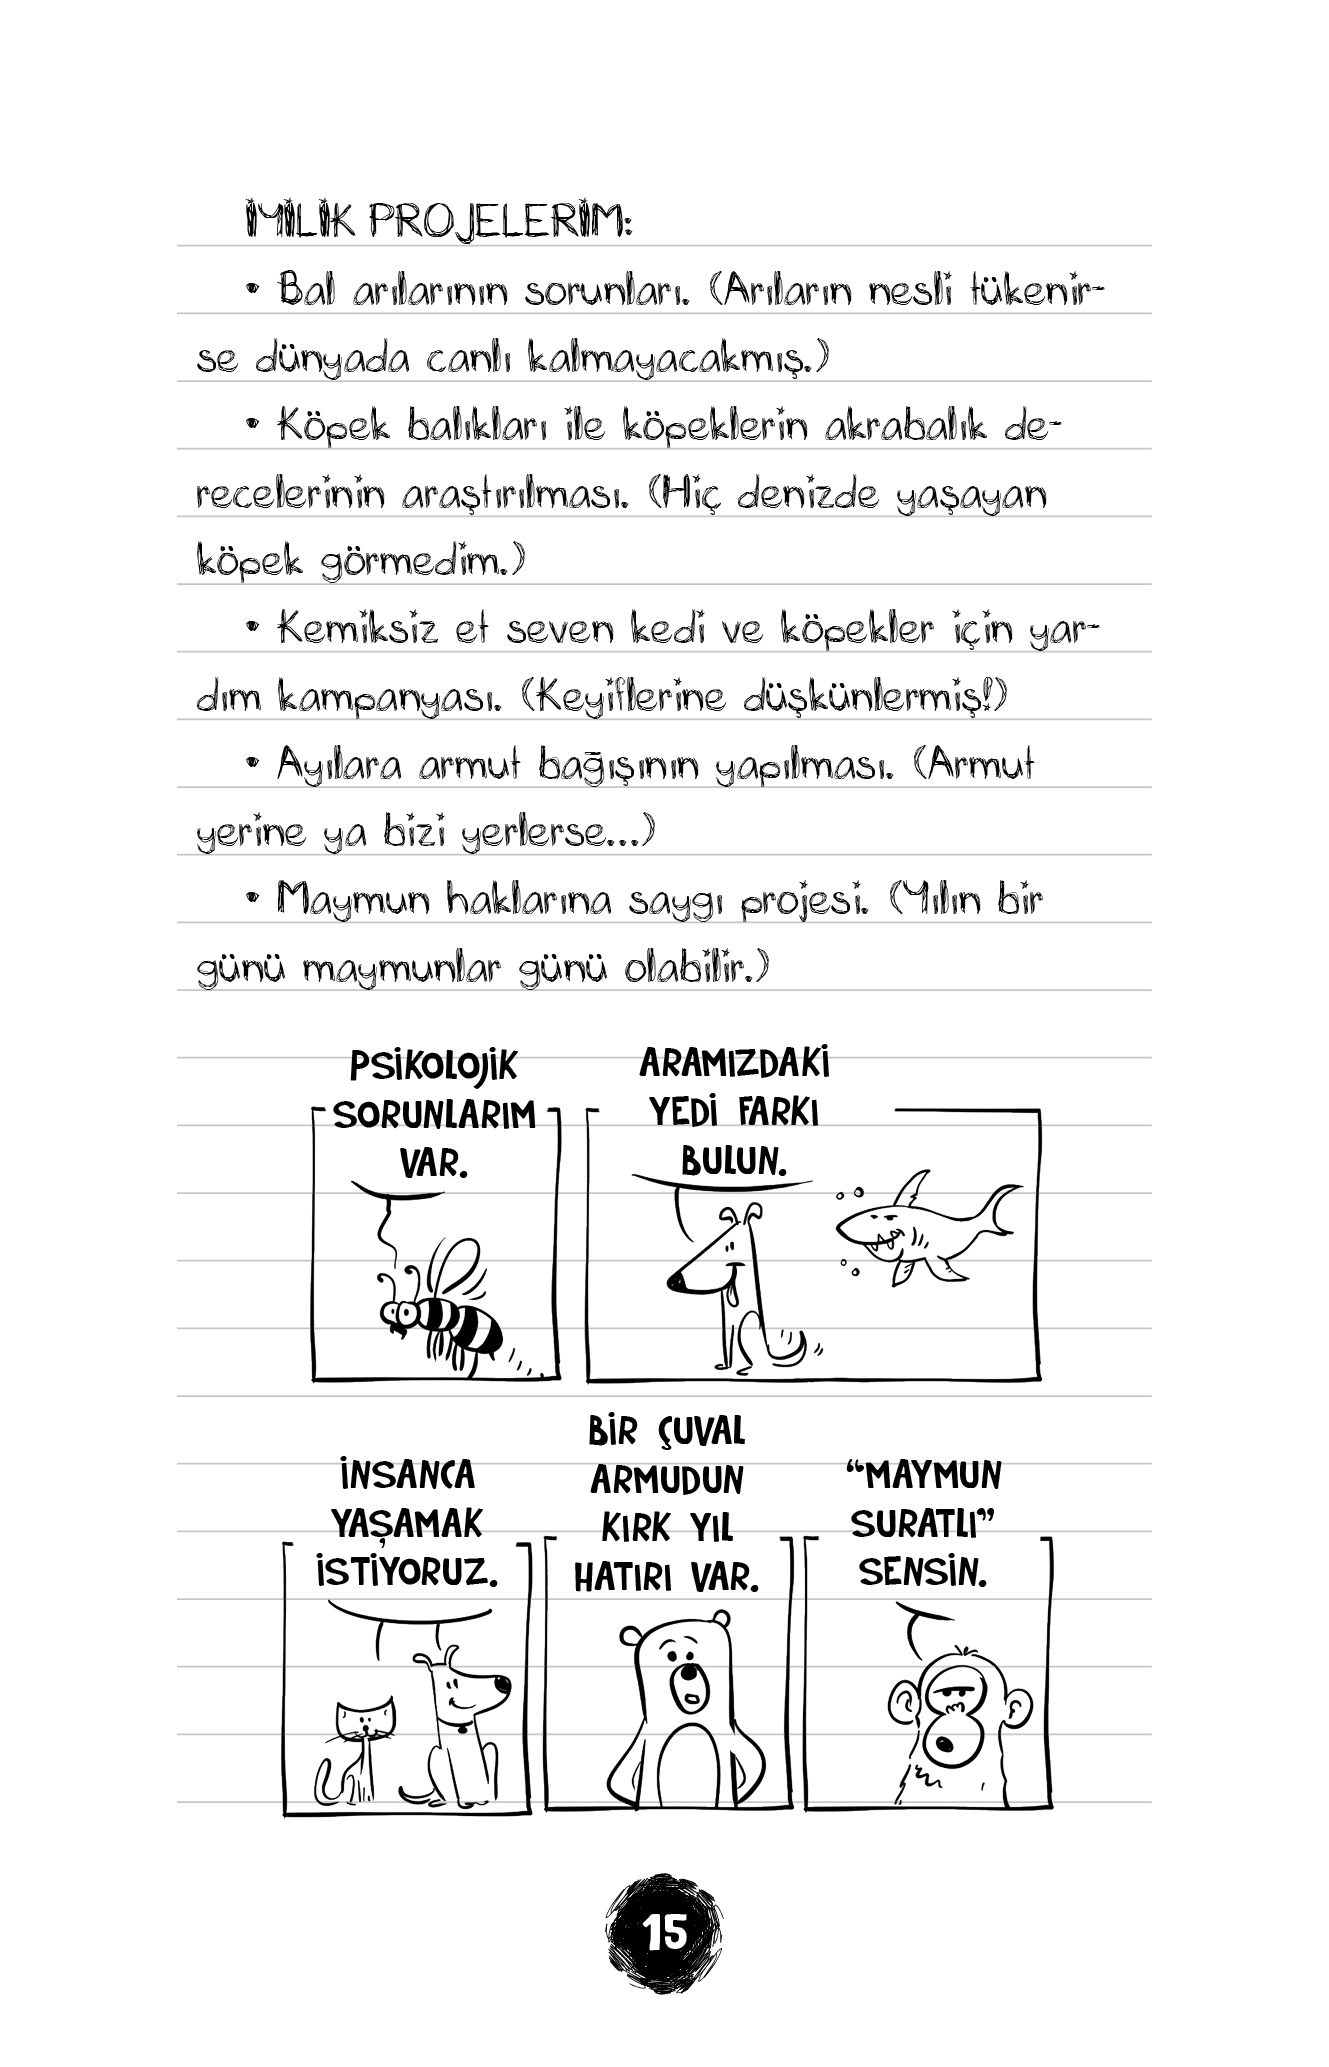 İYİLİK PROJELERİM:
• Bal arılarının sorunları. (Arıların nesli tükenir-
se dünyada canlı kalmayacakmış.)
• Köpek balıkları ile köpeklerin akrabalık de-
recelerinin araştırılması. (Hiç denizde yaşayan
köpek görmedim.)
• Kemiksiz et seven kedi ve köpekler için yar-
dım kampanyası. (Keyiflerine düşkünlermiş!)
• Ayılara armut bağışının yapılması. (Armut
yerine ya bizi yerlerse...)
• Maymun haklarına saygı projesi. (Yılın bir
günü maymunlar günü olabilir.)
PSİKOLOJİK
SORUNLARIM
VAR.
ARAMIZDAKİ
YEDİ FARKI
BULUN.
İNSANCA
YAŞAMAK
İSTİYORUZ.
BİR ÇUVAL
ARMUDUN
KIRK YIL
HATIRI VAR.
“MAYMUN
SURATLI”
SENSİN.
15